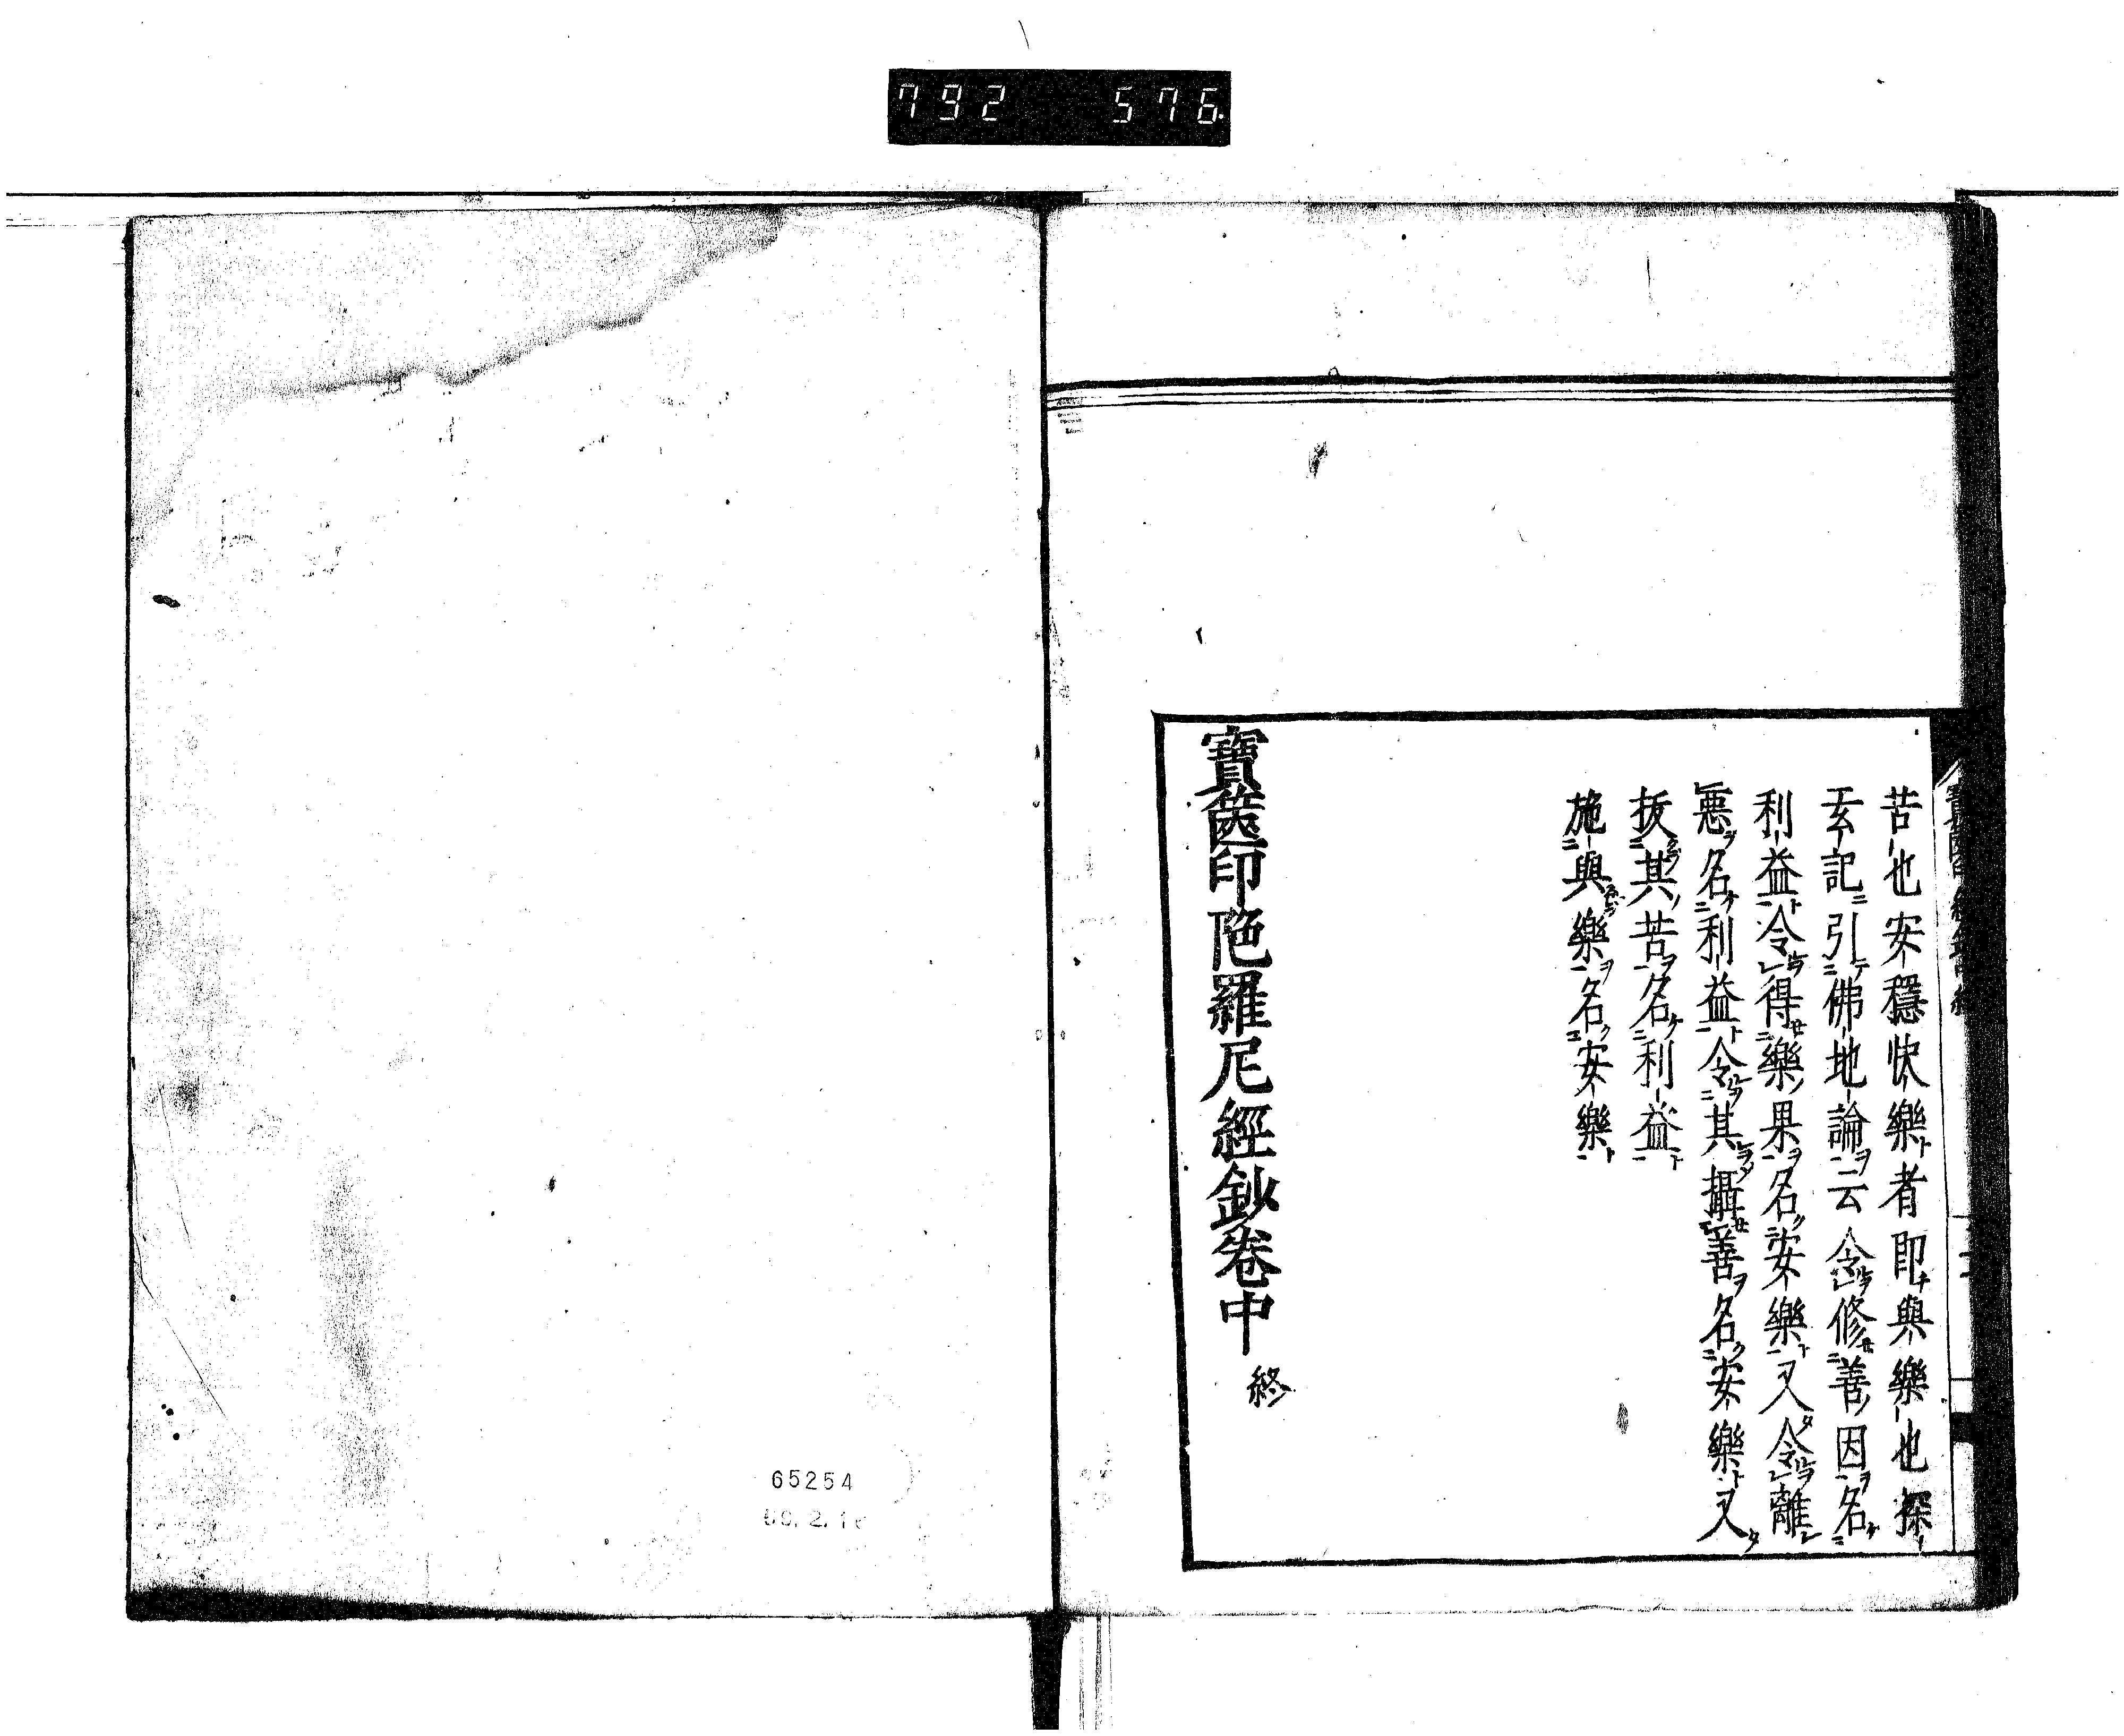 792 576
苦也安穩快樂者即與樂也探
玄記引佛地論云令修善因名
利益令得樂果名安樂又令離
惡名利益令其攝善名安樂又
拔其苦名利益
施與樂名安樂
寳篋印陁羅尼經鈔卷中 終
65254